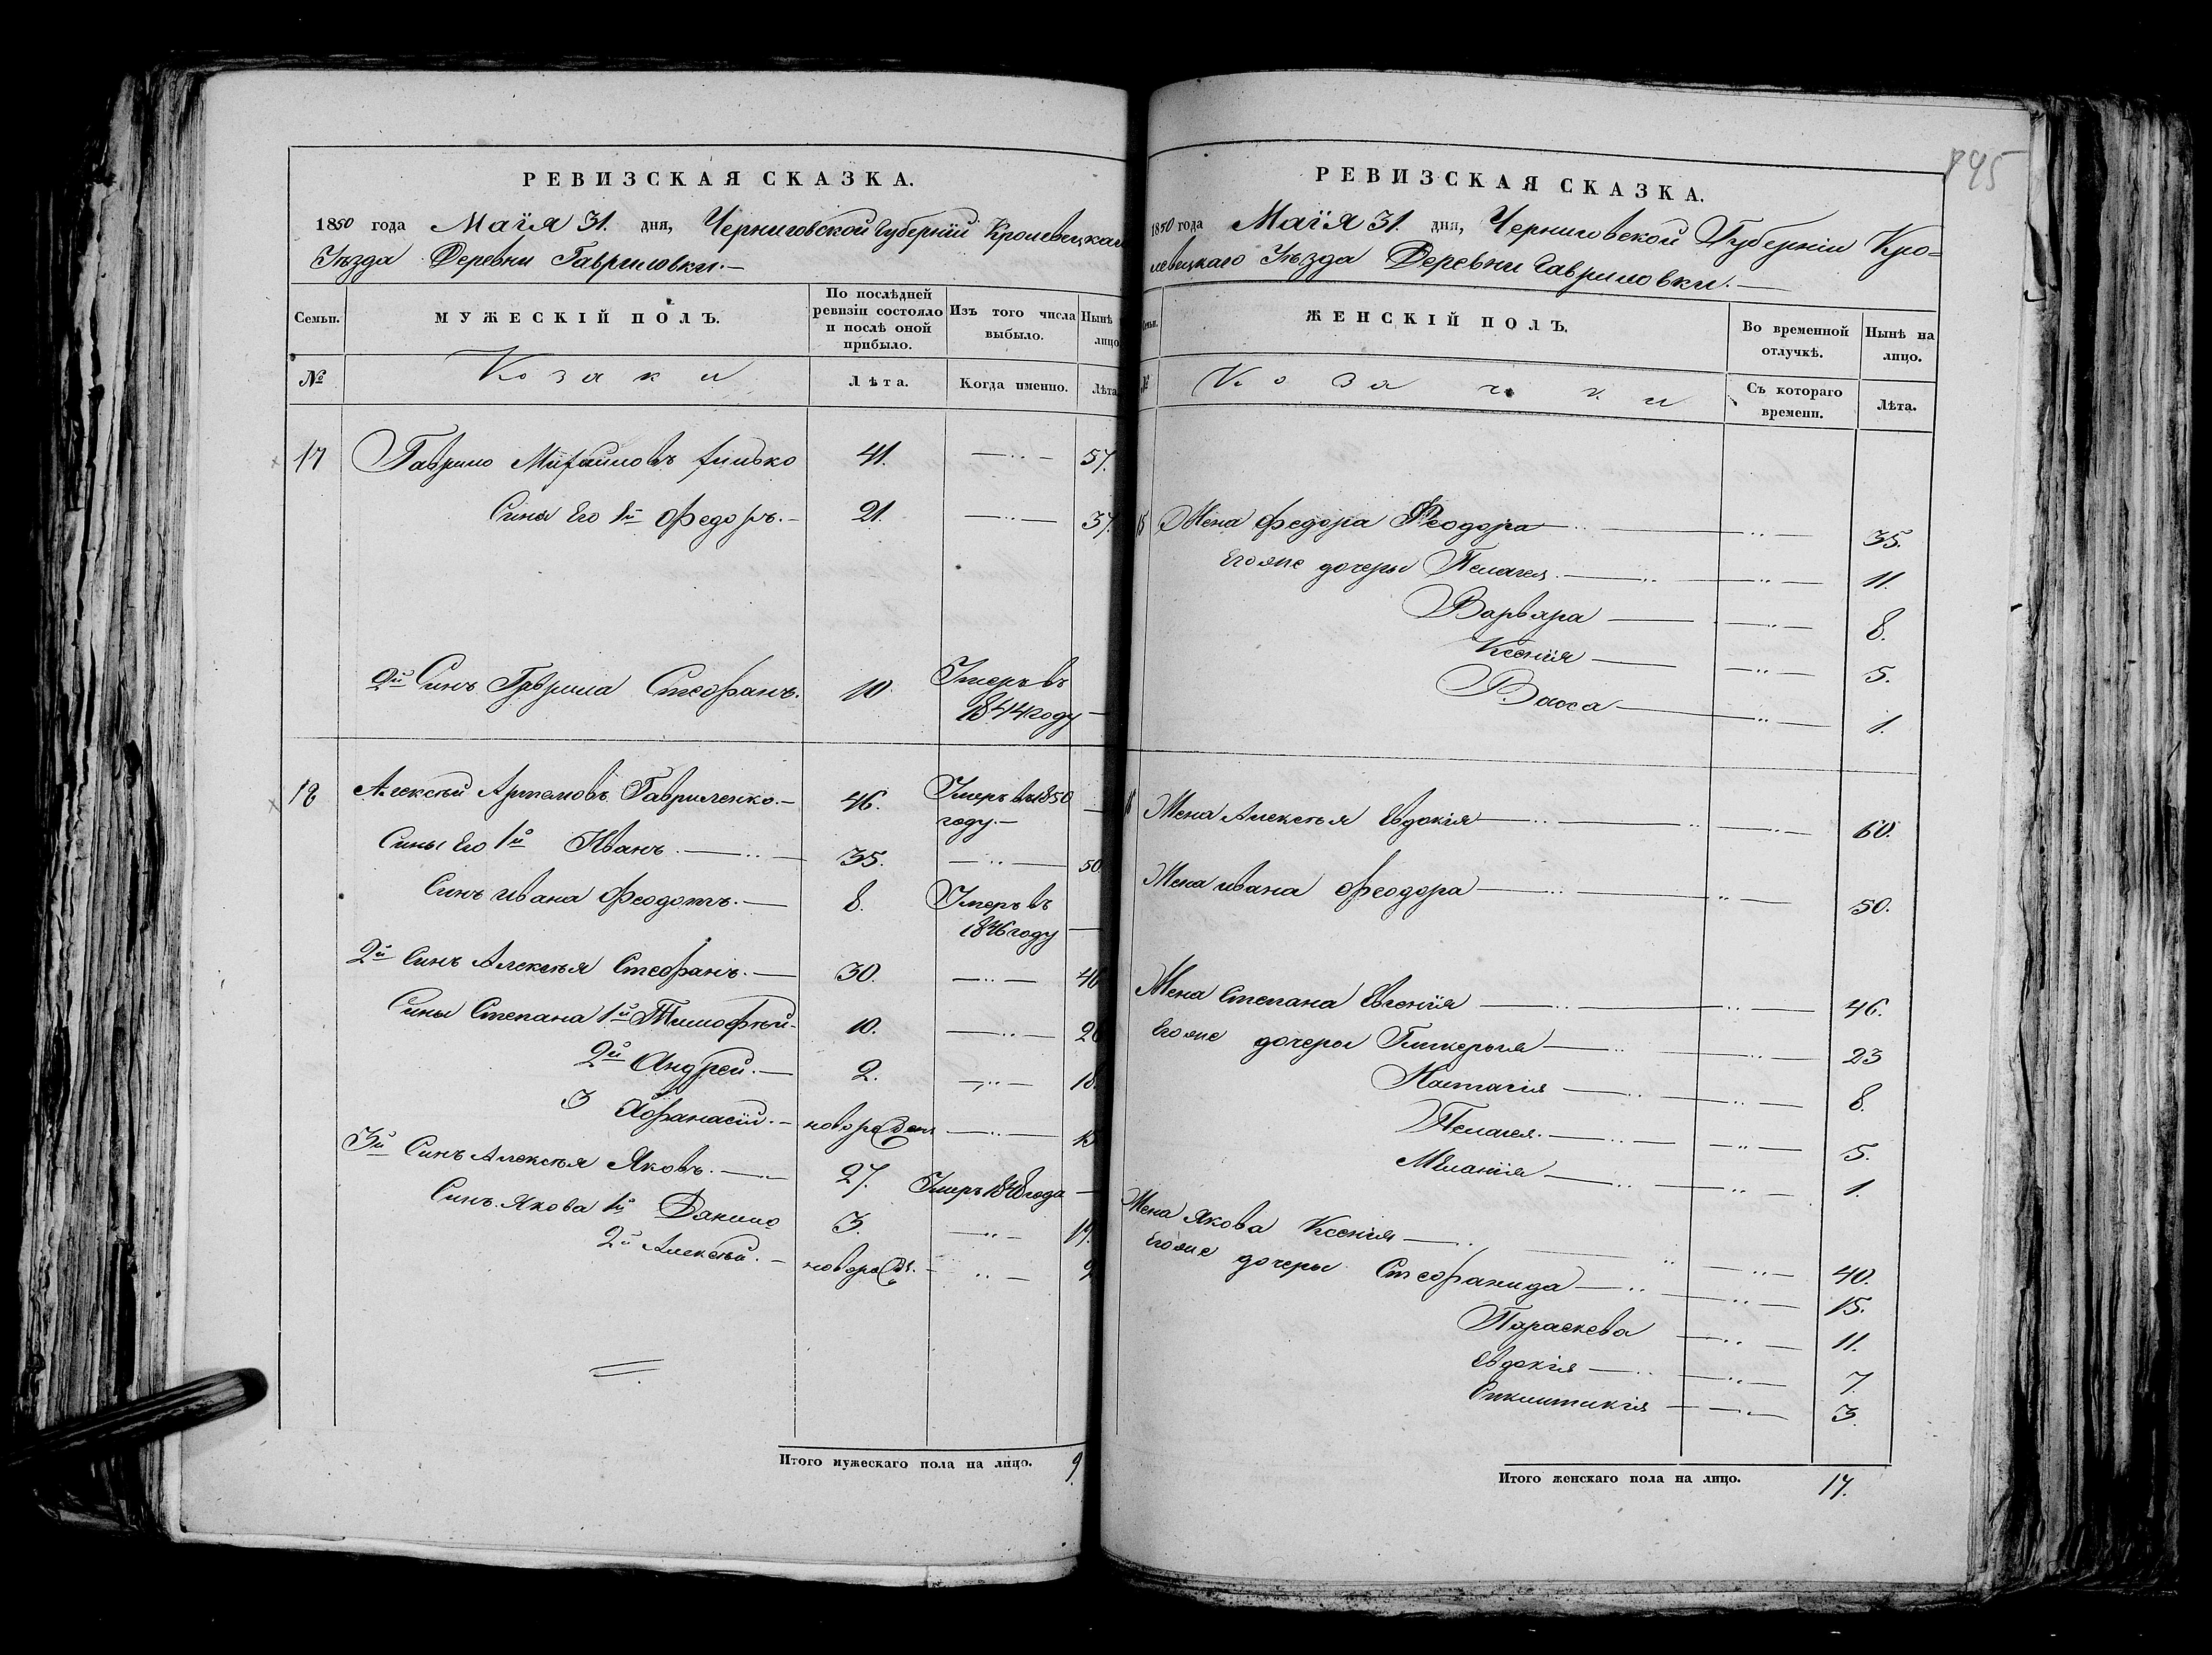 РЕВИЗСКАЯ СКАЗКА.
1850 года Маія 31. дня, Черниговской Губерніи Кролевецкаго
Уѣзда Деревни Гавриловки.—
Семьи. МУЖЕСКІЙ ПОЛЪ. По послѣдней ревизіи состояло и послѣ оной прибыло. Изъ того числа выбыло. Нынѣ лицо
№ Козаки Лѣта. Когда именно. Лѣта
17 Гаврило Михайловъ 41. — 57.
Сины Его 1й Федоръ.— 21. — 37.
2й Синъ Гаврила Стефанъ. 10. Умеръ въ
1844 году —
18 Алексѣй Артемовъ Гавриленко.— 46. Умеръ въ 1850
году.— —
Сины Его 1й Иванъ.— 35. — 50
Синъ Ивана Феодотъ.— 8. Умеръ въ
1846 году —
2й Синъ Алексѣя Стефанъ.— 30. — 46
Сины Степана 1й Тимофѣй— 10. — 26
2й Андрей.— 2. — 18.
3 Афанасій.— новорожден — 15
3й Синъ Алексѣя Яковъ.— 27. Умеръ 1848 года —
Синъ Якова 1й Данило 3. — 19.
2й Алексѣй.— новорожд. — 9
Итого мужескаго пола на лицо. 9.
845
РЕВИЗСКАЯ СКАЗКА.
1850 года Маія 31. дня, Черниговской Губерніи Кро=
левецкаго Уѣзда Деревни Гавриловки.—
Семьи. ЖЕНСКІЙ ПОЛЪ. Во временной отлучкѣ. Нынѣ на лицо.
№ Козачки Съ котораго времени. Лѣта.
Жена Федора Феодора — 35.
Его же дочеры Пелагея.— 11.
Варвара — 8.
Ксенія — 5.
Васса — 1.
Жена Алексѣя Евдокія — 60.
Жена Ивана Феодора — 50.
Жена Степана Евгенія — 46.
Его же дочеры Гликерыя — 23
Настасія — 8.
Пелагея.— 5.
Меланія — 1.
Жена Якова Ксенія — 40.
Его же дочеры Стефанида — 15.
Параскева — 11.
Евдокія — 7.
— 3.
Итого женскаго пола на лицо. 17.